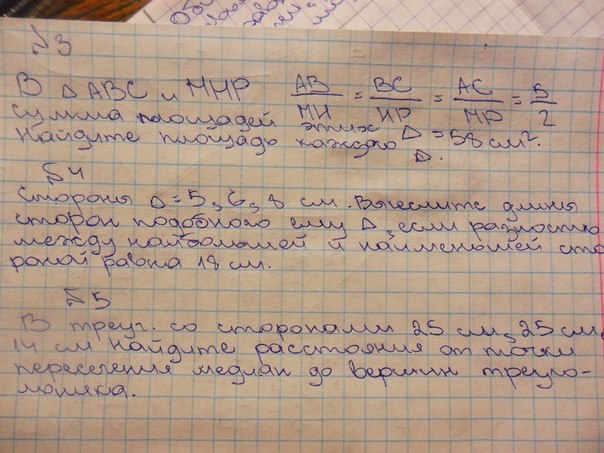 №3
В Δ ABC и MHP AB/MH = BC/HP = AC/MP = 5/2
сумма площадей этих Δ = 58 см².
Найдите площадь каждого Δ.
№4
Стороны Δ = 5, 6, 8 см. Вычислите длины
сторон подобного ему Δ, если разность
между наибольшей и наименьшей сто-
роной равна 18 см.
№5
В треуг. со сторонами 25 см, 25 см,
14 см найдите расстояния от точки
пересечения медиан до вершин треуго-
льника.